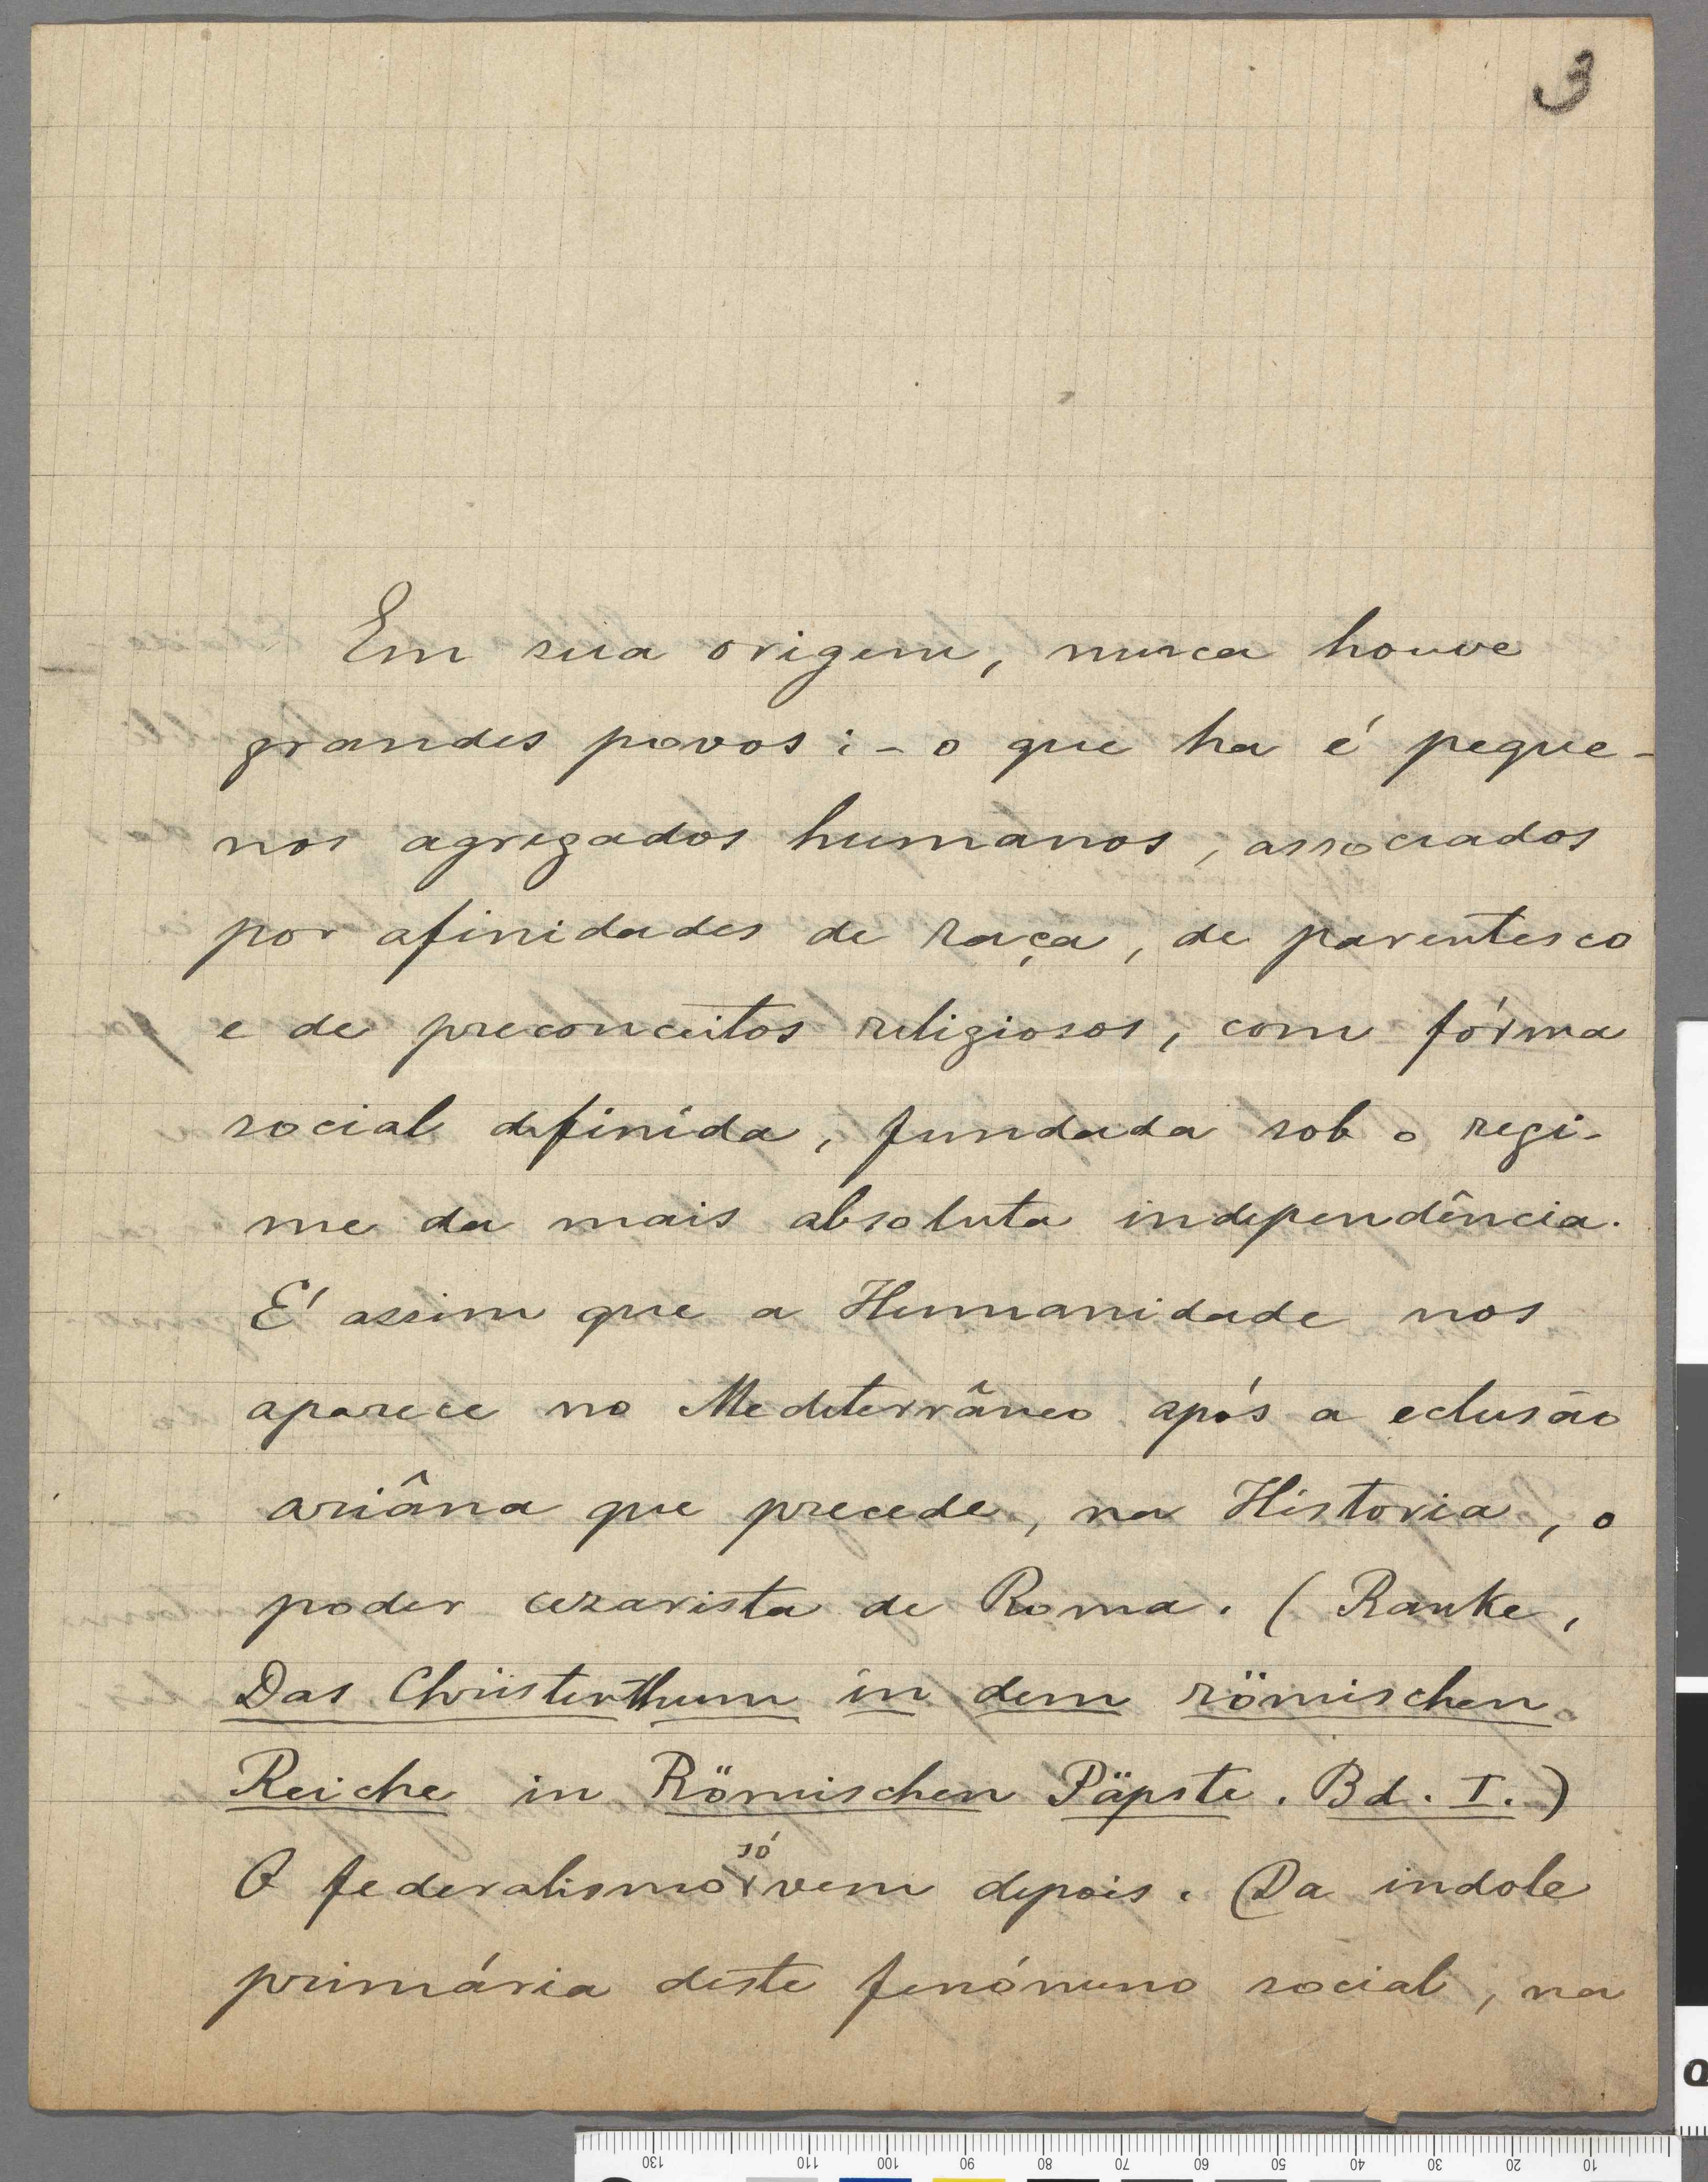 3
Em sua origem, nunca houve
grandes povos: - o que ha é peque-
nos agregados humanos, associados
por afinidades de raça, de parentesco
e de preconceitos religiosos, com fórma
social definida, fundada sob o regi-
me da mais absoluta independência.
E' assim que a Humanidade nos
aparece no Mediterrâneo após a eclusão
ariâna que precede, na Historia, o
poder cezarista de Roma. (Ranke,
Das Christenthum in dem römischen
Reiche in Römischen Päpste. Bd. I.)
O federalismo só vem depois. (Da indole
primária deste fenómeno social, na
130 110 100 90 80 70 60 50 40 30 20 10